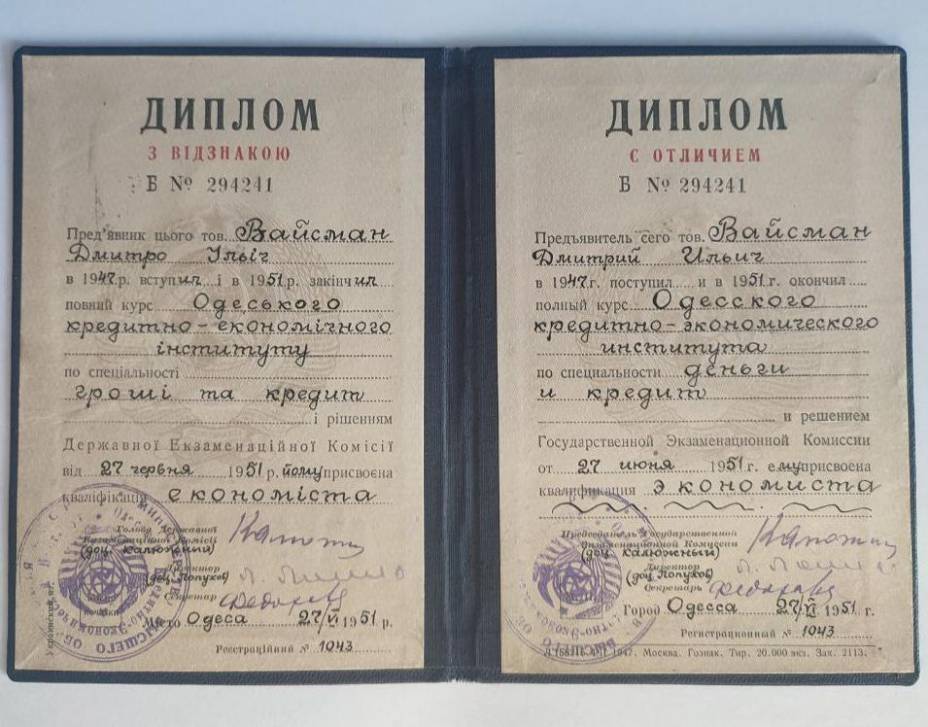 ДИПЛОМ
З ВІДЗНАКОЮ
Б № 294241
Пред'явник цього тов. Вайсман
Дмитро Ільіч
в 1947.р. вступил і в 1951.р. закінчил
повний курс Одеського
кредитно-економічного
інституту
по спеціальності
гроші та кредит
і рішенням
Державної Екзаменаційної Комісії
від 27 червня 1951 р. йому присвоєна
кваліфікація економіста
Голова Державної
Екзаменаційної Комісії
(доц. Калюжный)
Директор
(доц. Лопухов)
Секретар
Місто Одеса 27/VI 1951 р.
Реєстраційний № 1043
ДИПЛОМ
С ОТЛИЧИЕМ
Б № 294241
Предъявитель сего тов. Вайсман
Дмитрий Ильич
в 1947.г. поступил и в 1951.г. окончил
полный курс Одесского
кредитно-экономического
института
по специальности деньги
и кредит
и решением
Государственной Экзаменационной Комиссии
от 27 июня 1951 г. ему присвоена
квалификация экономиста
Председатель Государственной
Экзаменационной Комиссии
(доц. Калюжный)
Директор
(доц. Лопухов)
Секретарь
Город Одесса 27/VI 1951 г.
Регистрационный № 1043
1947. Москва. Гознак. Тир. 20.000 экз. Зак. 2113.